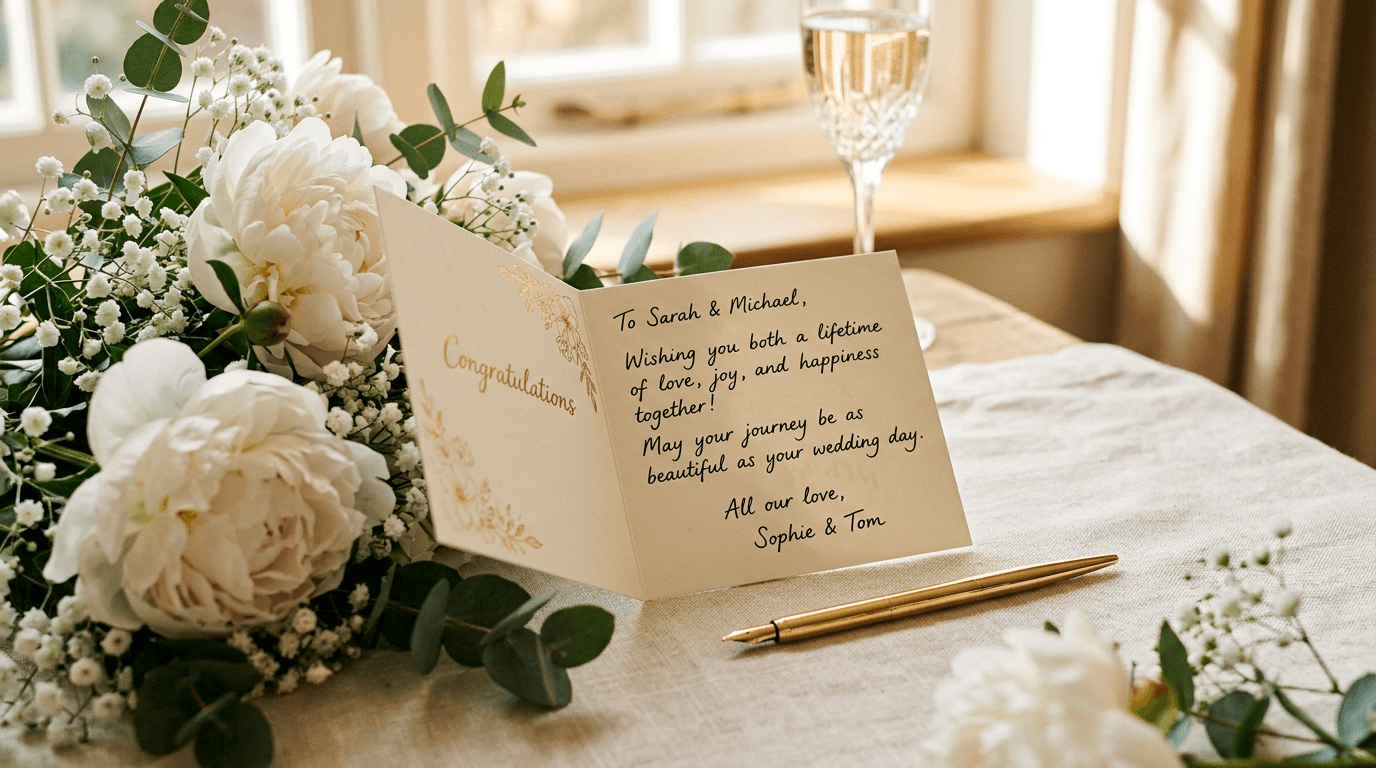 Congratulations
To Sarah & Michael,
Wishing you both a lifetime
of love, joy, and happiness
together!
May your journey be as
beautiful as your wedding day.
All our love,
Sophie & Tom